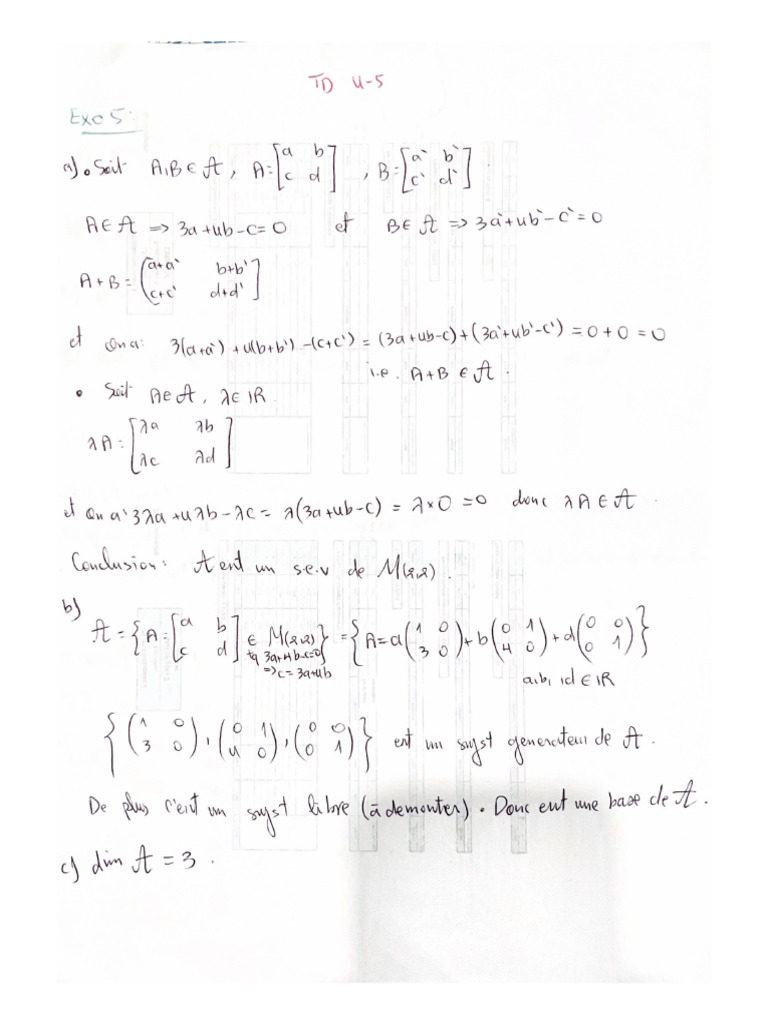 TD 4-5
Exo 5:
a) • Soit A,B ∈ A, A=[a b; c d], B=[a' b'; c' d'].
A ∈ A => 3a+4b-c=0 et B ∈ A => 3a'+4b'-c'=0
A+B = (a+a' b+b'; c+c' d+d']
et on a: 3(a+a')+4(b+b')-(c+c') = (3a+4b-c)+(3a'+4b'-c') = 0+0 = 0
i.e. A+B ∈ A.
• Soit A ∈ A, λ ∈ IR
λA = [λa λb; λc λd]
et on a: 3λa+4λb-λc = λ(3a+4b-c) = λ×0 = 0 donc λA ∈ A.
Conclusion: A est un s.e.v de M(2,2).
b)
A = {A=[a b; c d] ∈ M(2,2) tq 3a+4b-c=0 => c=3a+4b} = {A=a(1 0; 3 0)+b(0 1; 4 0)+d(0 0; 0 1)}
a,b,d ∈ IR
{(1 0; 3 0), (0 1; 4 0), (0 0; 0 1)} est un syst generateur de A.
De plus c'est un syst libre (à demonter). Donc est une base de A.
c) dim A = 3.